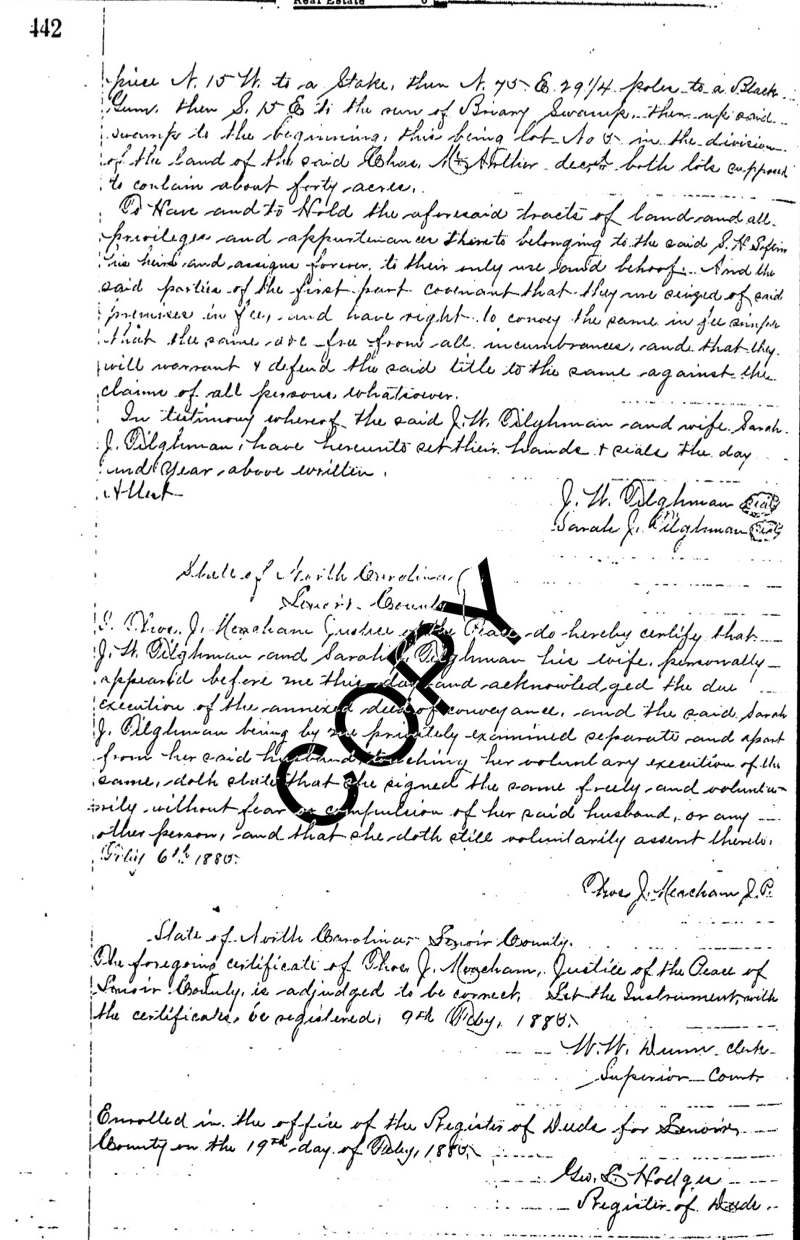 Real Estate
442
piece N. 15 W. to a Stake, then N. 75 E. 29 1/4 poles to a Black
Gum, then S. 15 E to the run of Briary Swamp, then up said
swamp to the beginning, this being lot No 5 in the division
of the land of the said Chas. McArther decst both lots supposed
to contain about forty acres.
To Have and to Hold the aforesaid tracts of land and all
privileges and appurtenances thereto belonging to the said S. H.
his heirs and assigns forever, to their only use and behoof. And the
said parties of the first part covenant that they are seized of said
premises in fee, and have right to convey the same in fee simple
that the same are free from all incumbrances, and that they
will warrant & defend the said title to the same against the
claims of all persons whatsoever.
In testimony whereof the said J. W. Tilghman and wife Sarah
J. Tilghman, have hereunto set their hands & seals the day
and Year above written.
Attest
J. W. Tilghman Seal
Sarah J. Tilghman Seal
State of North Carolina
Lenoir County
I Thos. J. Meacham Justice of the Peace do hereby certify that
J. W. Tilghman and Sarah J. Tilghman his wife, personally
appeared before me this day and acknowledged the due
execution of the annexed deed of conveyance, and the said Sarah
J. Tilghman being by me privately examined separate and apart
from her said husband touching her voluntary execution of the
same, doth state that she signed the same freely and volunta-
rily without fear or compulsion of her said husband, or any
other person, and that she doth still voluntarily assent thereto.
Feby 6th 1885.
Thos J. Meacham J. P.
COPY
State of North Carolina Lenoir County.
The foregoing certificate of Thos. J. Meacham, Justice of the Peace of
Lenoir County, is adjudged to be correct. Let the Instrument with
the certificates be registered. 9th Feby, 1885.
W. W. Dunn clerk
Superior Court
Enrolled in the office of the Register of Deeds for Lenoir
County on the 19th day of Feby, 1885.
Geo. L. Hodges
Register of Deeds